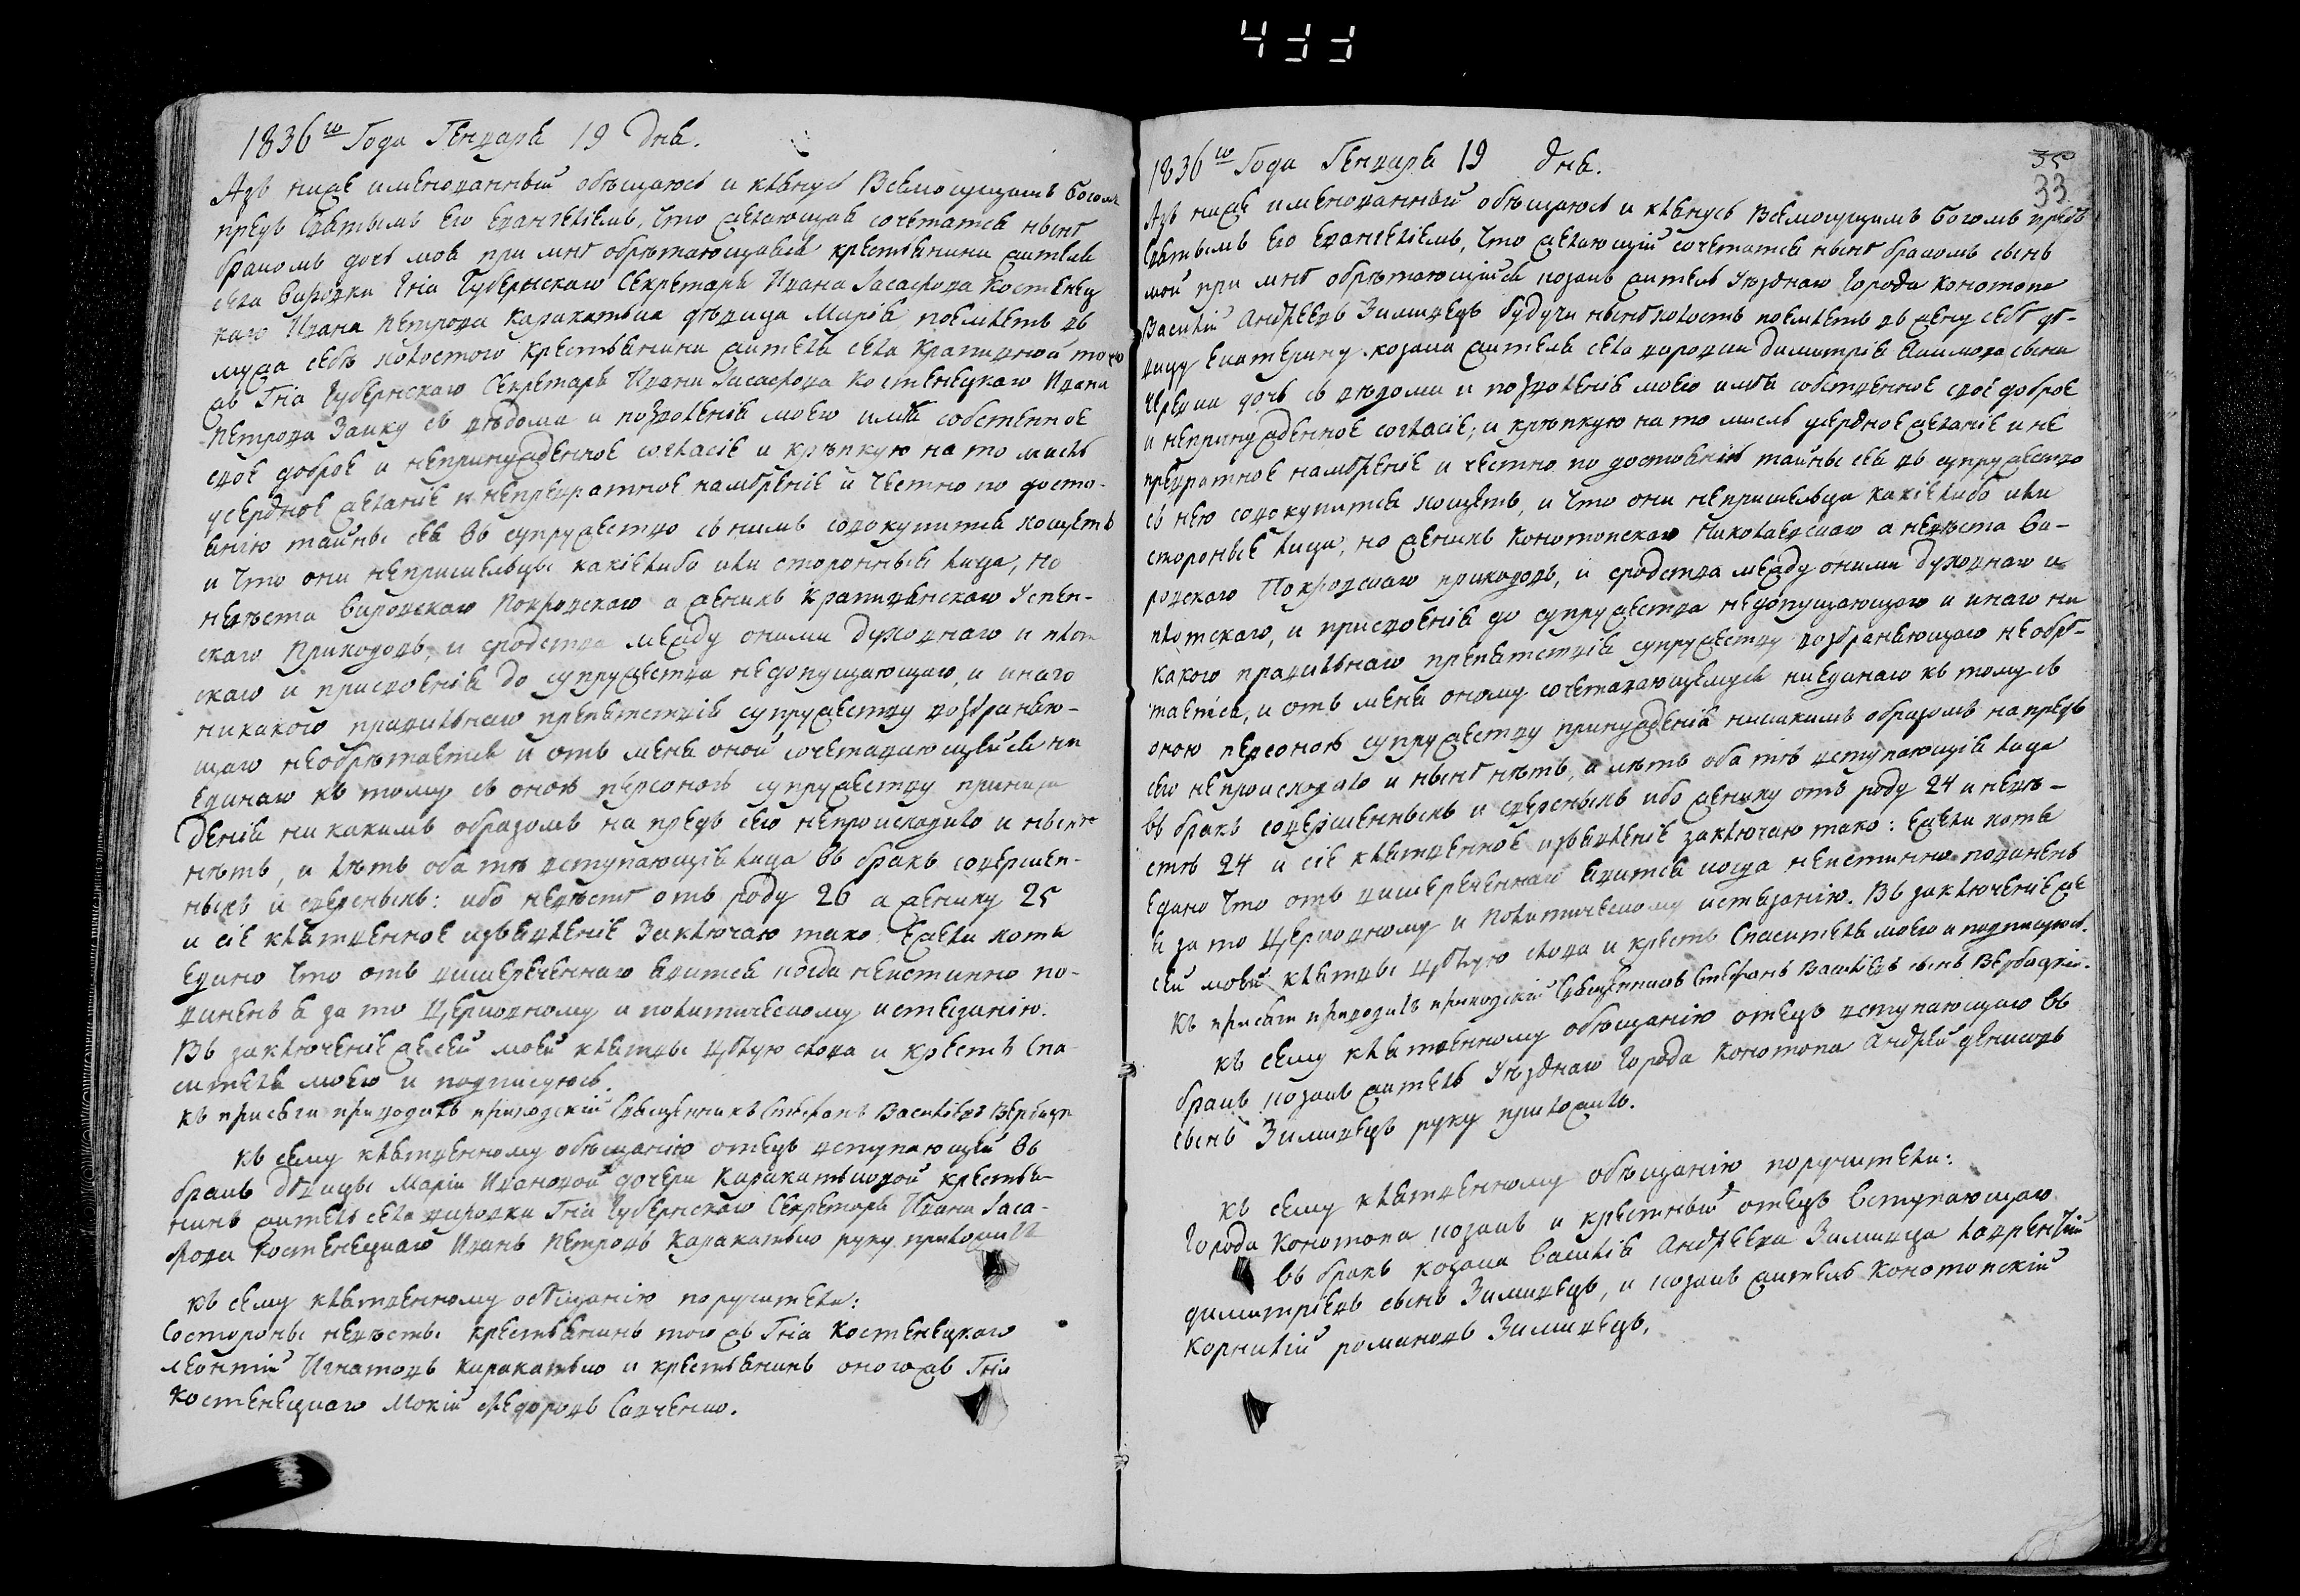 433
1836го Года Генваря 19 дня.
Азъ ниже именованный обѣщаюсь и клянусь Всемогущимъ Богомъ
предъ Святымъ Его Евангеліемъ, что желающая сочетатся нынѣ
бракомъ дочь моя при мнѣ обрѣтающаяся крестьянина жителя
села Вировки Гна Губернскаго Секретаря Ивана Касафова Костенец
каго Ивана Петрова Каракатька дѣвица Марія поемлетъ въ
мужа себѣ холостого крестьянина жителя села Крапивной того
жъ Гна Губернскаго Секретаря Ивана Касафова Костенецкаго Ивана
Петрова Заику съ вѣдома и позволенія моего имѣя собственное
свое доброе и непринужденное согласіе и крѣпкую на то мысль
усердное желаніе и непревратное намѣреніе и честно по досто-
янію тайны сея въ супружество съ нимъ совокупится хощетъ
и что они непришельцы какіелибо или сторонныя лица, но
невѣста Вировскаго Покровскаго а женихъ Крапивянскаго Успен-
скаго приходовъ, и сродства между оными духовнаго и плот
скаго и присвоенія до супружества недопущающаго, и инаго
никакого правильнаго препятствія супружеству возбраняю-
щаго необрѣтается и отъ мене оной сочетавающейся ни
единаго къ тому съ оною персоною супружеству принуж
денія никакимъ образомъ на предъ сего непроисходило и нынѣ
нѣтъ, и лѣтъ оба тѣ вступающія лица въ бракъ совершен-
ныхъ и сверсныхъ: ибо невѣстѣ отъ роду 26 а жениху 25
и сіе клятвенное изъявленіе заключаю тако: Ежели хотя
едино что отъ вишереченнаго явится когда неистинно по-
виненъ я за то Церковному и политическому истязанію.
Въ заключеніе же сей моей клятвы цѣлую слова и крестъ Спа
сителя моего и подписуюсь.
Къ присяги приводилъ приходскій Священникъ Стефанъ Василіевъ
Къ сему клятвенному обѣщанію отецъ вступающей въ
бракъ дѣвицы Маріи Ивановой дочери Каракатьковой крестья-
нинъ житель села Вировки Гна Губернскаго Секретаря Ивана Каса-
фова Костенецкаго Иванъ Петровъ Каракатько руку приложилъ
Къ сему клятвенному обѣщанію поручители:
Состороны невѣсты крестьянинъ того жъ Гна Костенецкаго
Леонтій Игнатовъ Каракатько и крестьянинъ оного жъ Гна
Костенецкаго Мокій Федоровъ Савченко.
35
33
1836го Года Генваря 19 дня.
Азъ ниже именованный обѣщаюсь и клянусь Всемогущимъ Богомъ предъ
Святымъ Его Евангеліемъ, что желающій сочетатся нынѣ бракомъ сынъ
мой при мнѣ обрѣтающійся козакъ житель Уѣзднаго Города Конотопа
Василій Андреевъ Зимивецъ будучи нынѣ холостъ поемлетъ въ жену себѣ дѣ-
вицу Екатерину козака жителя села Вировки Димитрія Акимова сына
дочь съ вѣдома и позволенія моего имѣя собственное свое доброе
и непринужденное согласіе; и крѣпкую на то мысль усердное желаніе и не
превратное намѣреніе и честно по достоянію тайны сея въ супружество
съ нею совокупится хощетъ, и что они непришельцы какіелибо или
стороныя лица, но женихъ Конотопскаго Николаевскаго а невѣста Ви-
ровскаго Покровскаго приходовъ, и сродства между оними духовнаго и
плотскаго, и присвоенія до супружества недопущающаго и инаго ни
какого правильнаго препятствія супружеству возбраняющаго необрѣ-
тается, и отъ мене оному сочетавающемуся ниединаго къ тому съ
оною персоною супружеству принужденія никакимъ образомъ на предъ
сего непроисходило и нынѣ нѣтъ, а лѣтъ оба тѣ вступающія лица
въ бракъ совершенныхъ и сверсныхъ ибо жениху отъ роду 24 и невѣ-
стѣ 24 и сіе клятвенное изъявленіе заключаю тако: Ежели хотя
едино что отъ вишереченнаго явится когда неистинно повиненъ
я за то Церковному и Политическому истязанію. Въ заключеніе же
сей моей клятвы цѣлую слова и крестъ Спасителя моего и подписуюсь.
Къ присяги приводилъ приходскій Священникъ Стефанъ Василіевъ сынъ
Къ сему клятвенному обѣщанію отецъ вступающаго въ
бракъ козакъ житель Уѣзднаго Города Конотопа Андрей Денисовъ
сынъ Зимивецъ руку приложилъ.
Къ сему клятвенному обѣщанію поручители:
Города Конотопа козакъ и крестный отецъ вступающаго
въ бракъ козака Василія Андреева Зимивца Лаврентій
Димитріевъ сынъ Зимивецъ, и козакъ житель Конотопскій
Корнилій Романовъ Зимивецъ.